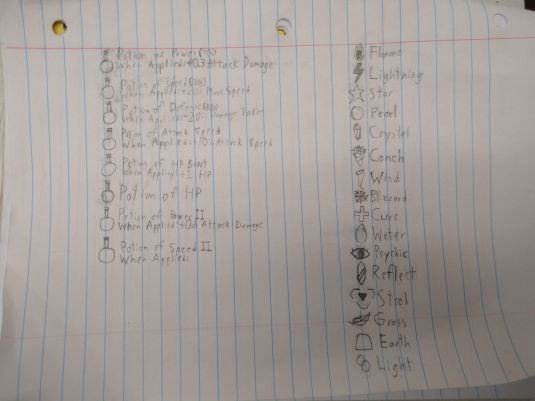 Potion of Power
When Applied: +0.3 Attack Damage
Potion of Speed
When Applied: Move Speed
Potion of
When Applied: Damage Taken
Potion of Attack Speed
When Applied: +10% Attack Speed
Potion of HP Boost
When Applied: +1 HP
Potion of HP
Potion of Power II
When Applied: Attack Damage
Potion of Speed II
When Applied:
Flame
Lightning
Star
Pearl
Crystal
Conch
Wind
Blizzard
Cure
Water
Psychic
Reflect
Steel
Grass
Earth
Light